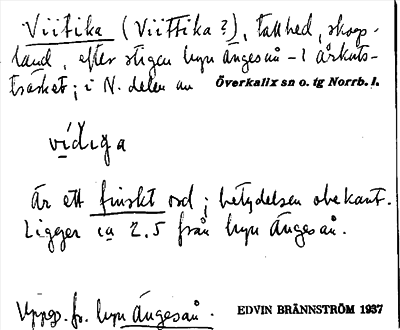 Viitika (Viittika?), tallhed, skogs-
land, efter stigen byn Ängeså - i Årkuts-
träsket; i N. delen av Överkalix sn o. tg Norrb. l.
vídiga
är ett finskt ord; betydelsen obekant.
Ligger ca 2.5 från byn Ängeså.
Uppg. fr. byn Ängeså. EDVIN BRÄNNSTRÖM 1937